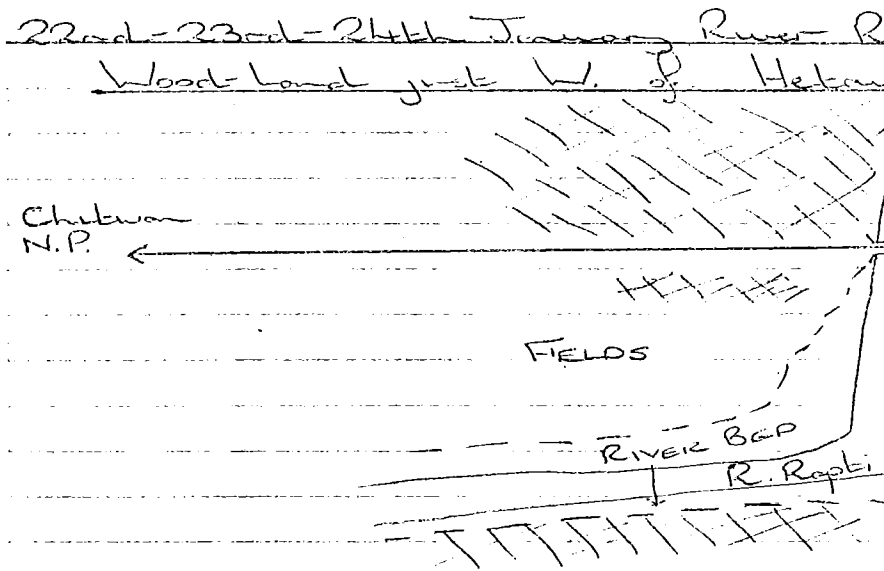 22nd-23rd-24th January River R
Woodland just W. of Hetau
Chitwan
N.P.
FIELDS
RIVER BED
R. Rapti